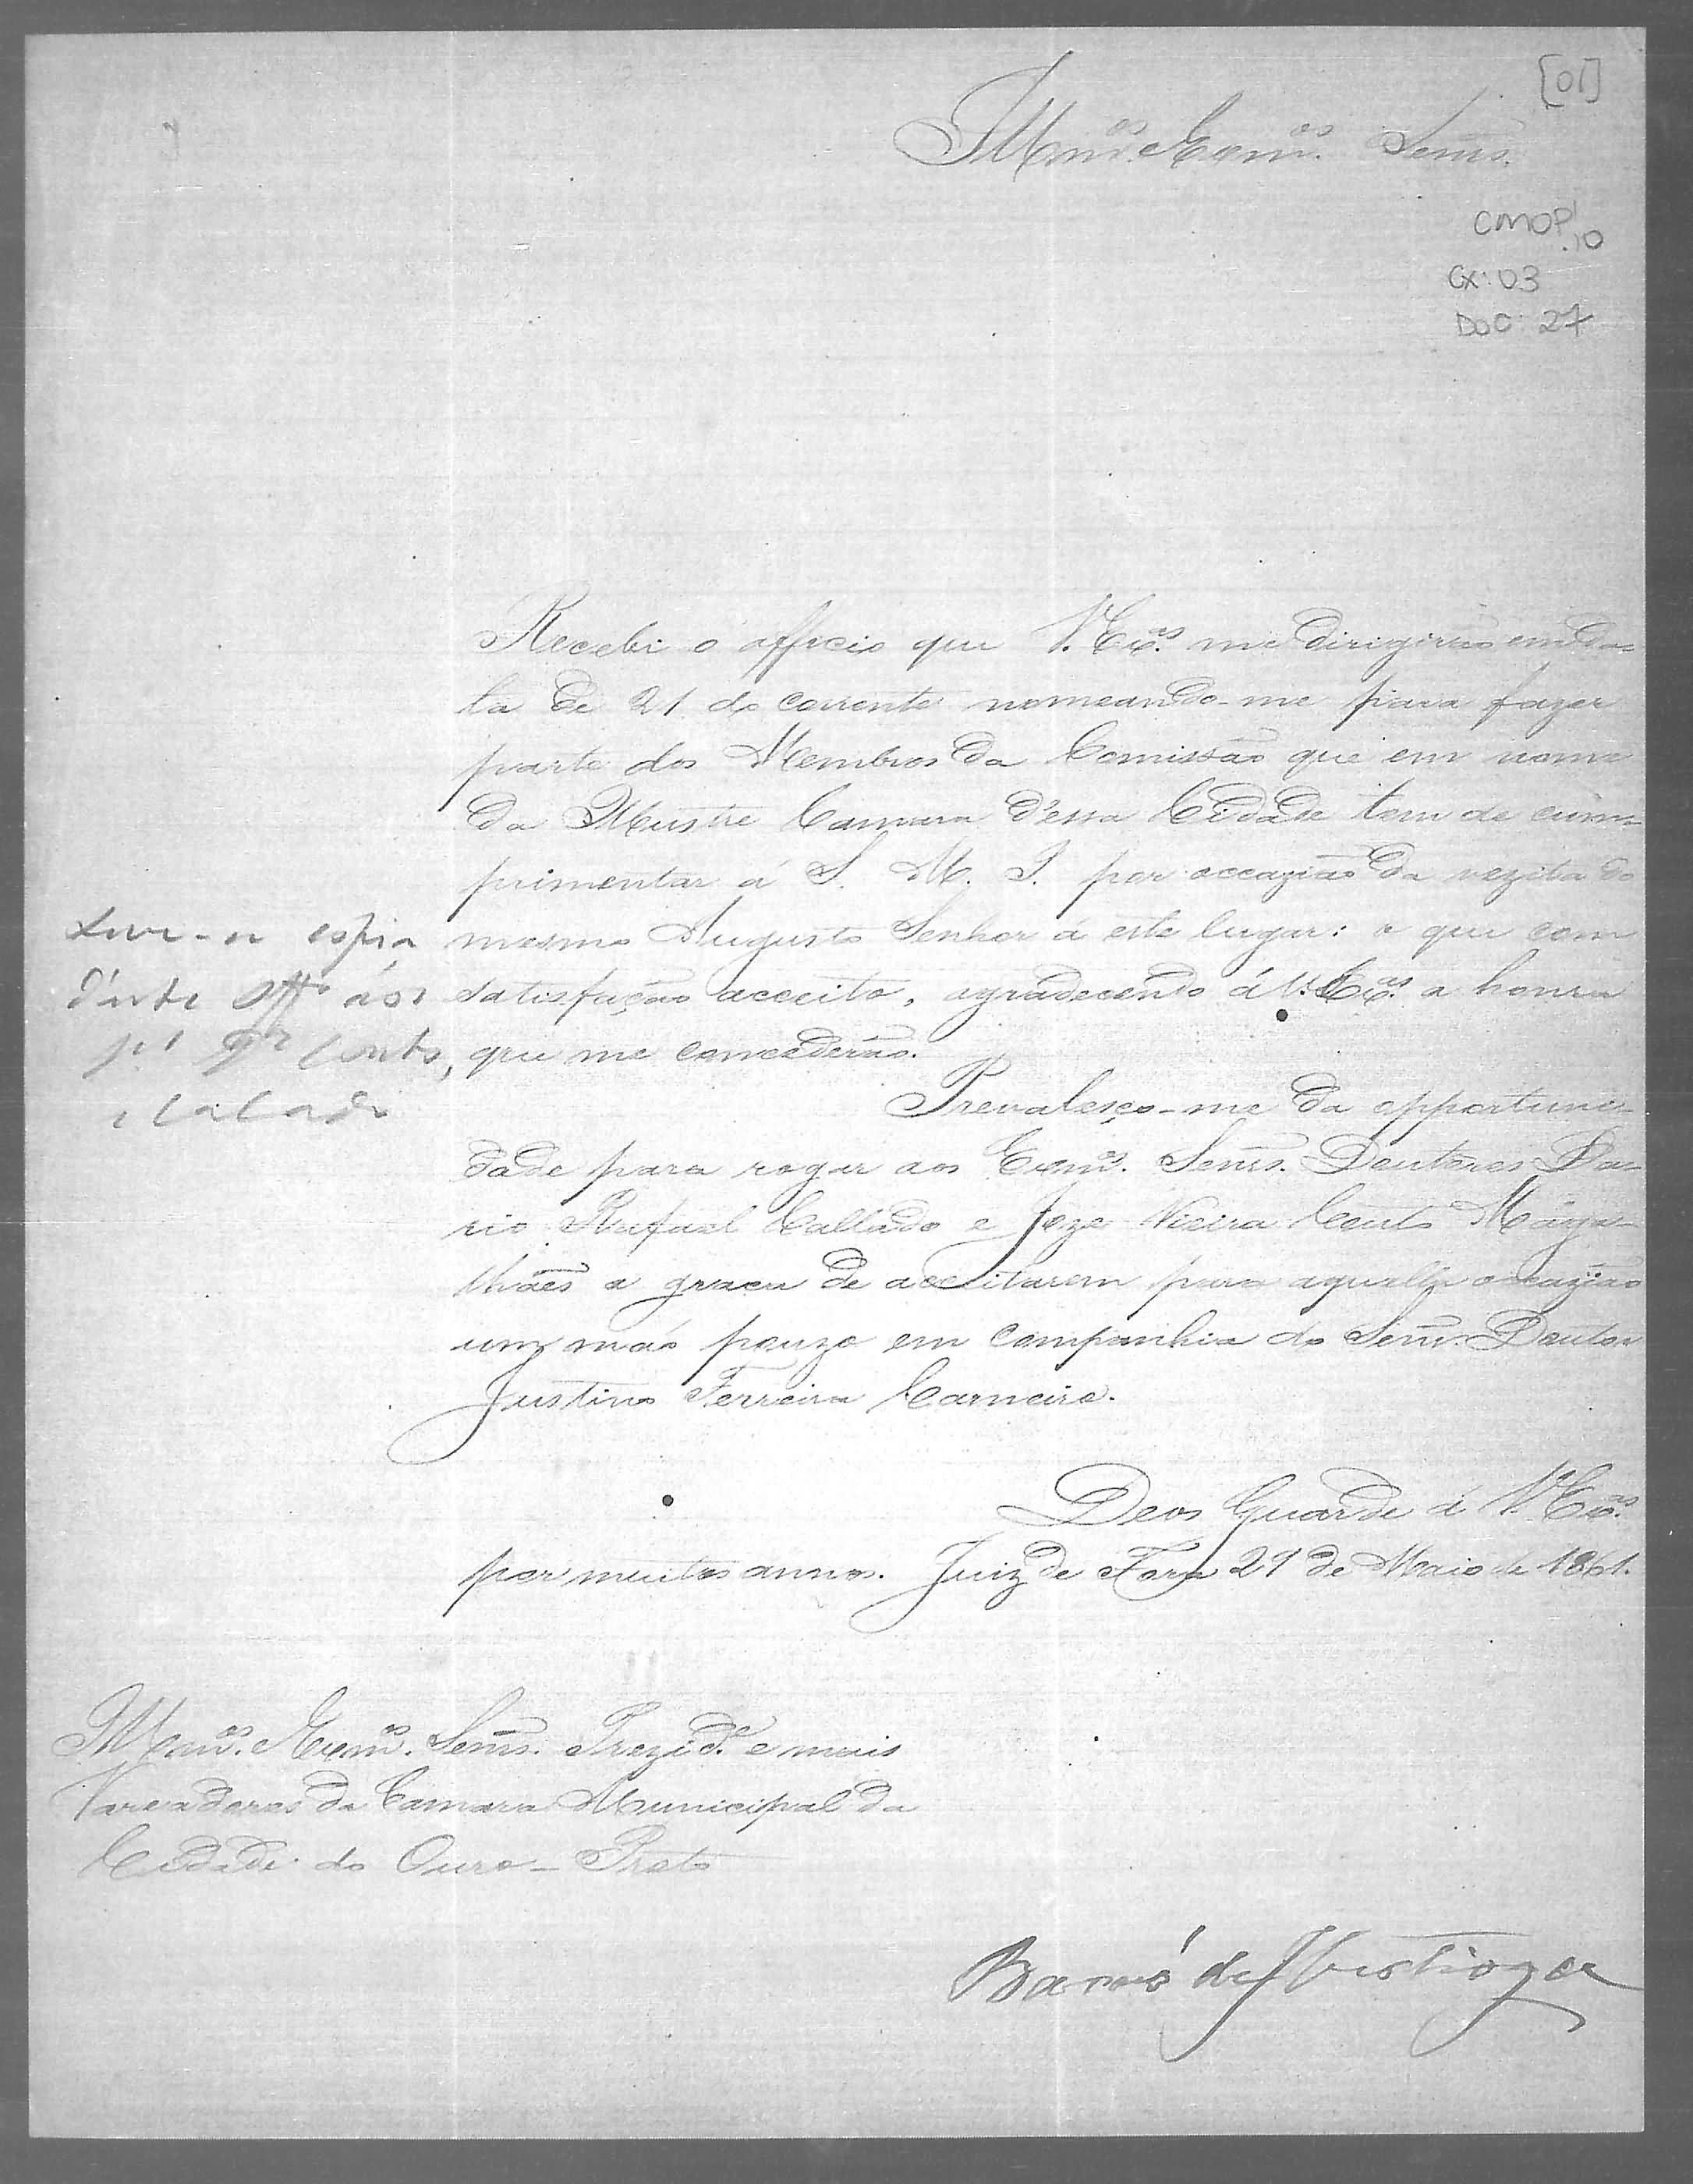 [01]
Illmos. Exmos. Senrs.
CMOP
.10
CX: 03
DOC: 27
Recebi o officio que V. Excas. me dirigirão em da-
ta de 21 do corrente nomeando-me para fazer
parte dos Membros da Comissão que em nome
da Illustre Camara d'essa Cidade tem de cum-
primentar á S. M. I. por occazião da vezita do
mesmo Augusto Senhor á este lugar: o que com
satisfação acceito, agradecendo á V. Excas. a honra
que me concederão.
d'este Offo. aos
Couto,
e Calado
Prevalesço-me da opportuni-
dade para rogar aos Exmos. Senrs. Doutores Da-
rio Rafael Callado e Joze Vieira Couto Maga-
lhães a graça de acceitarem para aquella occazião
um máo pouzo em companhia do Senr. Doutor
Justino Ferreira Carneiro.
Deos Guarde á V. Excas.
por muitos annos. Juiz de Fora 29 de Maio de 1861.
Illmos. Exmos. Senrs. Prezide. e mais
Vareadores da Camara Municipal da
Cidade do Ouro-Preto
Barão de